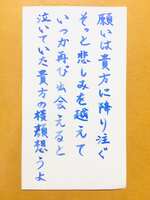 願いは貴方に降り注ぐ
そっと悲しみを越えて
いつか再び出会えると
泣いていた貴方の横顔想うよ